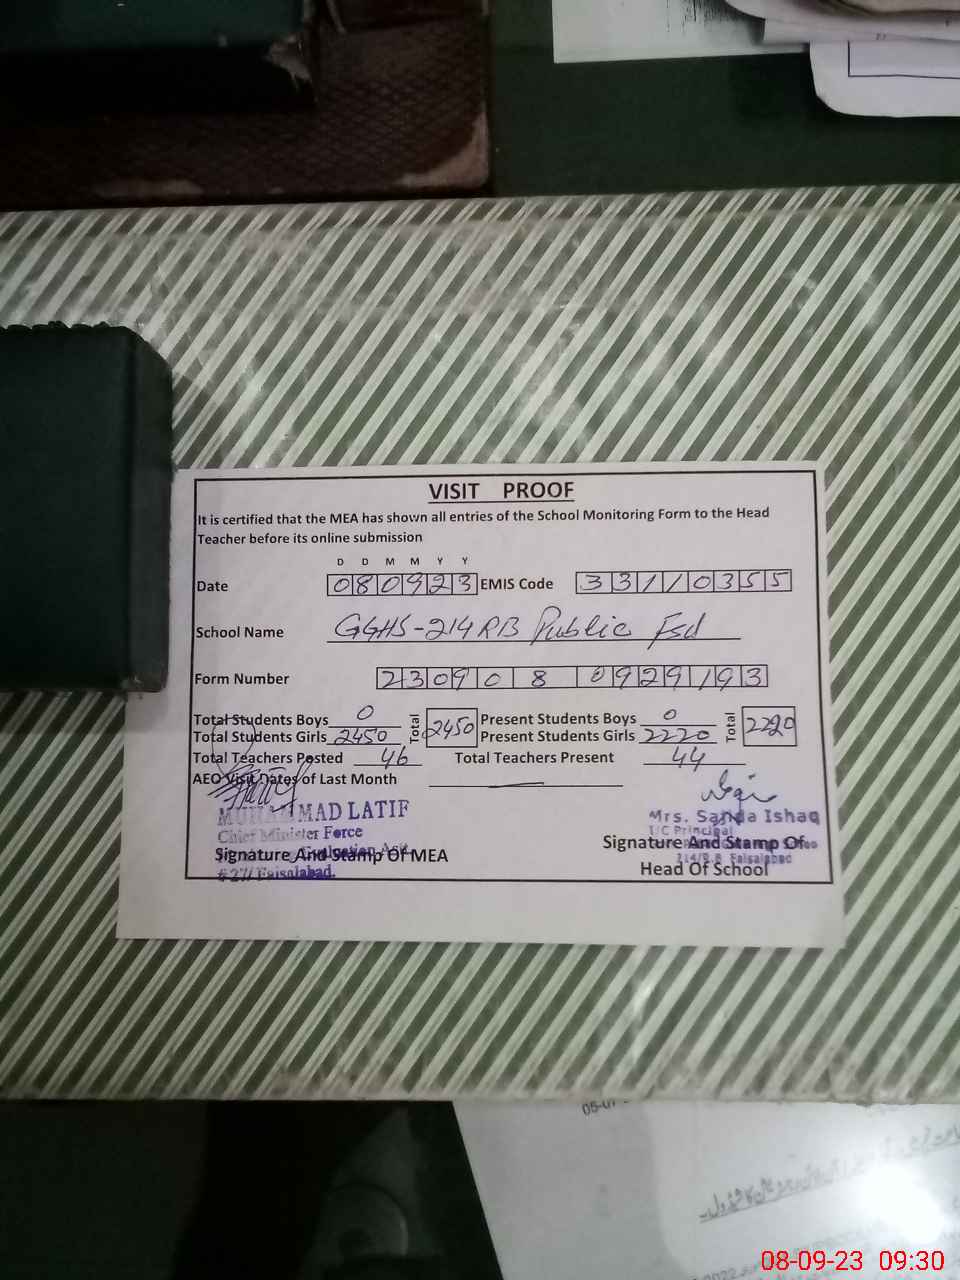 VISIT PROOF
It is certified that the MEA has shown all entries of the School Monitoring Form to the Head
Teacher before its online submission
D D M M Y Y
Date 080923 EMIS Code 33110355
School Name GGHS-214 RB Public Fsd
Form Number 2309080929193
Total Students Boys 0 Total 2450 Present Students Boys 0 Total 2220
Total Students Girls 2450 Present Students Girls 2220
Total Teachers Posted 46 Total Teachers Present 44
AEO Visit Dates of Last Month
MUHAMMAD LATIF
Chief Minister Force
Signature And Stamp Of MEA
# 27/ Faisalabad.
Mrs. Sanda Ishaq
I/C Principal
Signature And Stamp Of
214/R.B Faisalabad
Head Of School
08-09-23 09:30